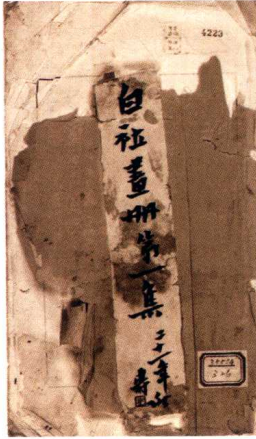 4223
白社畫冊第一集
二十一年
壽